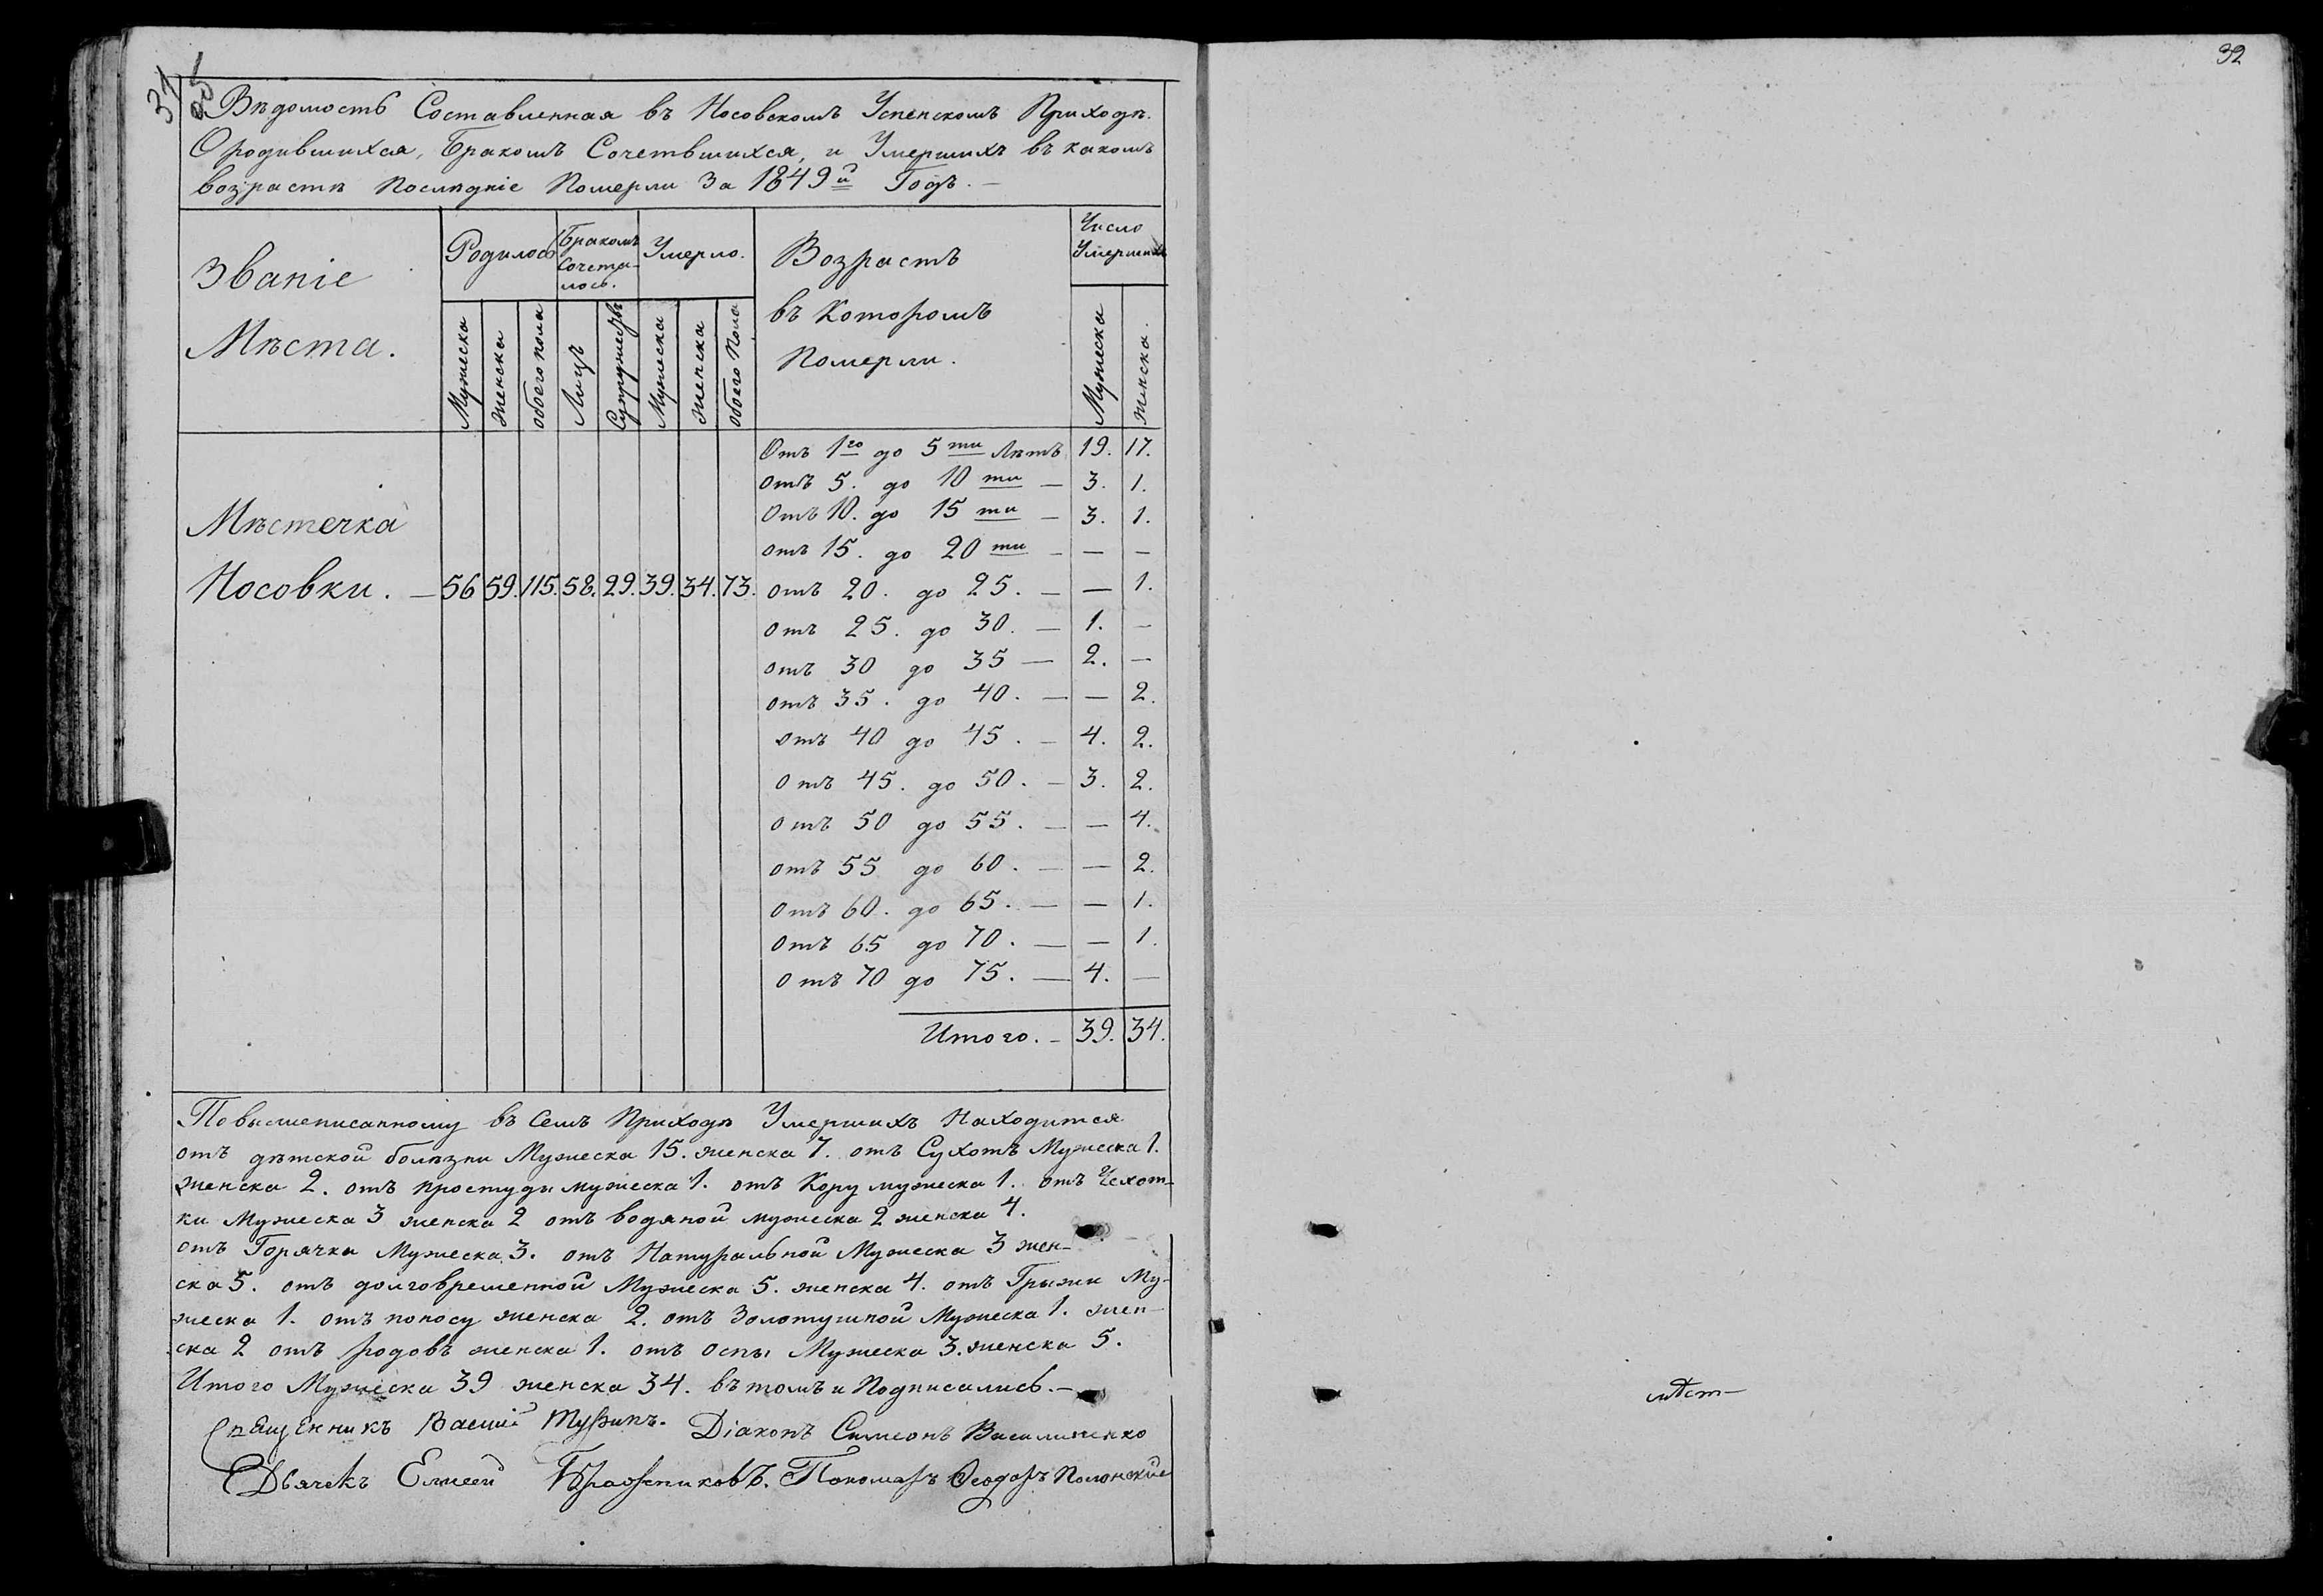 31
об
Вѣдомость Составленная въ Носовскомъ Успенскомъ Приходѣ.
О родившихся, Бракомъ Сочетвшихся, и Умершихъ въ какомъ
возрастѣ Послѣдніе Померли За 1849й Годъ. —
Званіе Мѣста.
Родилось
Бракомъ Сочета-
лось.
Умерло.
Возрастъ
въ Которомъ
Померли.
Число
Умершихъ
Мужеска Женска обоего пола Лицъ Супружествъ Мужеска Женска обоего пола Мужеска Женска.
Отъ 1го до 5ти Лѣтъ 19. 17.
отъ 5. до 10ти — 3. 1.
Отъ 10. до 15ти — 3. 1.
отъ 15. до 20ти — — —
Мѣстечка
Носовки. — 56 59. 115. 58. 29. 39. 34. 73. отъ 20. до 25. — — 1.
отъ 25. до 30. — 1. —
отъ 30 до 35 — 2. —
отъ 35. до 40. — — 2.
отъ 40 до 45. — 4. 2.
отъ 45. до 50. — 3. 2.
отъ 50 до 55. — — 4.
отъ 55 до 60. — — 2.
отъ 60. до 65. — — 1.
отъ 65 до 70. — — 1.
отъ 70 до 75. — 4. —
Итого. — 39. 34.
По вышеписанному въ семъ Приходѣ Умершихъ Находится
отъ дѣтской болѣзни Мужеска 15. женска 7. отъ Сухотъ Мужеска 1.
женска 2. отъ простуды мужеска 1. отъ Кору мужеска 1. отъ Чехот-
ки Мужеска 3 женска 2 отъ водяной мужеска 2 женска 4.
отъ Горячки Мужеска 3. отъ Натуральной Мужеска 3 жен-
ска 5. отъ долговременной Мужеска 5. женска 4. отъ Грыжи Му-
жеска 1. отъ поносу женска 2. отъ Золотушной Мужеска 1. жен-
ска 2 отъ родовъ женска 1. отъ оспы Мужеска 3. женска 5.
Итого Мужеска 39 женска 34. въ томъ и Подписались. —
Священникъ Василій Діаконъ Симеонъ Василипенко
Дьячекъ Елисей Бражниковъ. Пономарь Ѳеодоръ Полонскій
32